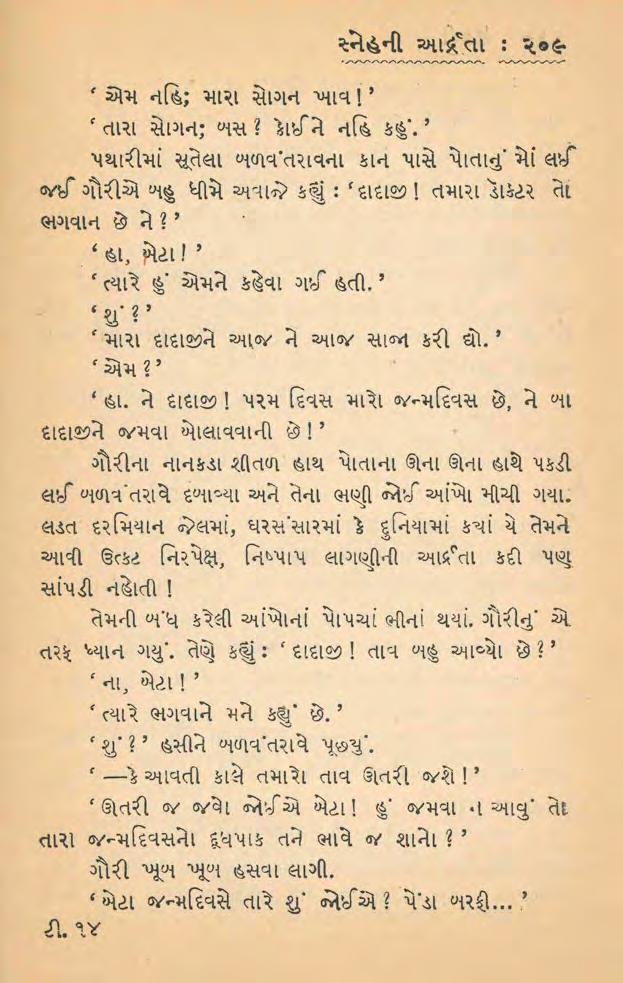 સ્નેહની આર્દ્રતા : ૨૦૯
‘ એમ નહિ; મારા સોગન ખાવ! ’
‘ તારા સોગન; બસ ? કોઈને નહિ કહું. ’
પથારીમાં સૂતેલા બળવંતરાવના કાન પાસે પોતાનું મોં લઈ
જઈ ગૌરીએ બહુ ધીમે અવાજે કહ્યું : ‘ દાદાજી ! તમારા ડૉક્ટર તો
ભગવાન છે ને ? ’
‘ હા, બેટા! ’
‘ ત્યારે હું એમને કહેવા ગઈ હતી. ’
‘ શું ? ’
‘ મારા દાદાજીને આજ ને આજ સાજા કરી દ્યો. ’
‘ એમ ? ’
‘ હા. ને દાદાજી ! પરમ દિવસ મારો જન્મદિવસ છે, ને બા
દાદાજીને જમવા બોલાવવાની છે! ’
ગૌરીના નાનકડા શીતળ હાથ પોતાના ઊના ઊના હાથે પકડી
લઈ બળવંતરાવે દબાવ્યા અને તેના ભણી જોઈ આંખો મીચી ગયા.
લડત દરમિયાન જેલમાં, ઘરસંસારમાં કે દુનિયામાં કયાં યે તેમને
આવી ઉત્કટ નિરપેક્ષ, નિષ્પાપ લાગણીની આર્દ્રતા કદી પણ
સાંપડી નહોતી !
તેમની બંધ કરેલી આંખોનાં પોપચાં ભીનાં થયાં. ગૌરીનું એ
તરફ ધ્યાન ગયું. તેણે કહ્યું : ‘ દાદાજી ! તાવ બહુ આવ્યો છે ? ’
‘ ના, બેટા ! ’
‘ ત્યારે ભગવાને મને કહ્યું છે. ’
‘ શું ? ’ હસીને બળવંતરાવે પૂછ્યું.
‘ —કે આવતી કાલે તમારો તાવ ઊતરી જશે ! ’
‘ ઊતરી જ જવો જોઈએ બેટા! હું જમવા ન આવું તો
તારા જન્મદિવસનો દૂધપાક તને ભાવે જ શાનો ? ’
ગૌરી ખૂબ ખૂબ હસવા લાગી.
‘ બેટા જન્મદિવસે તારે શું જોઈએ ? પેંડા બરફી... ’
ટી. ૧૪